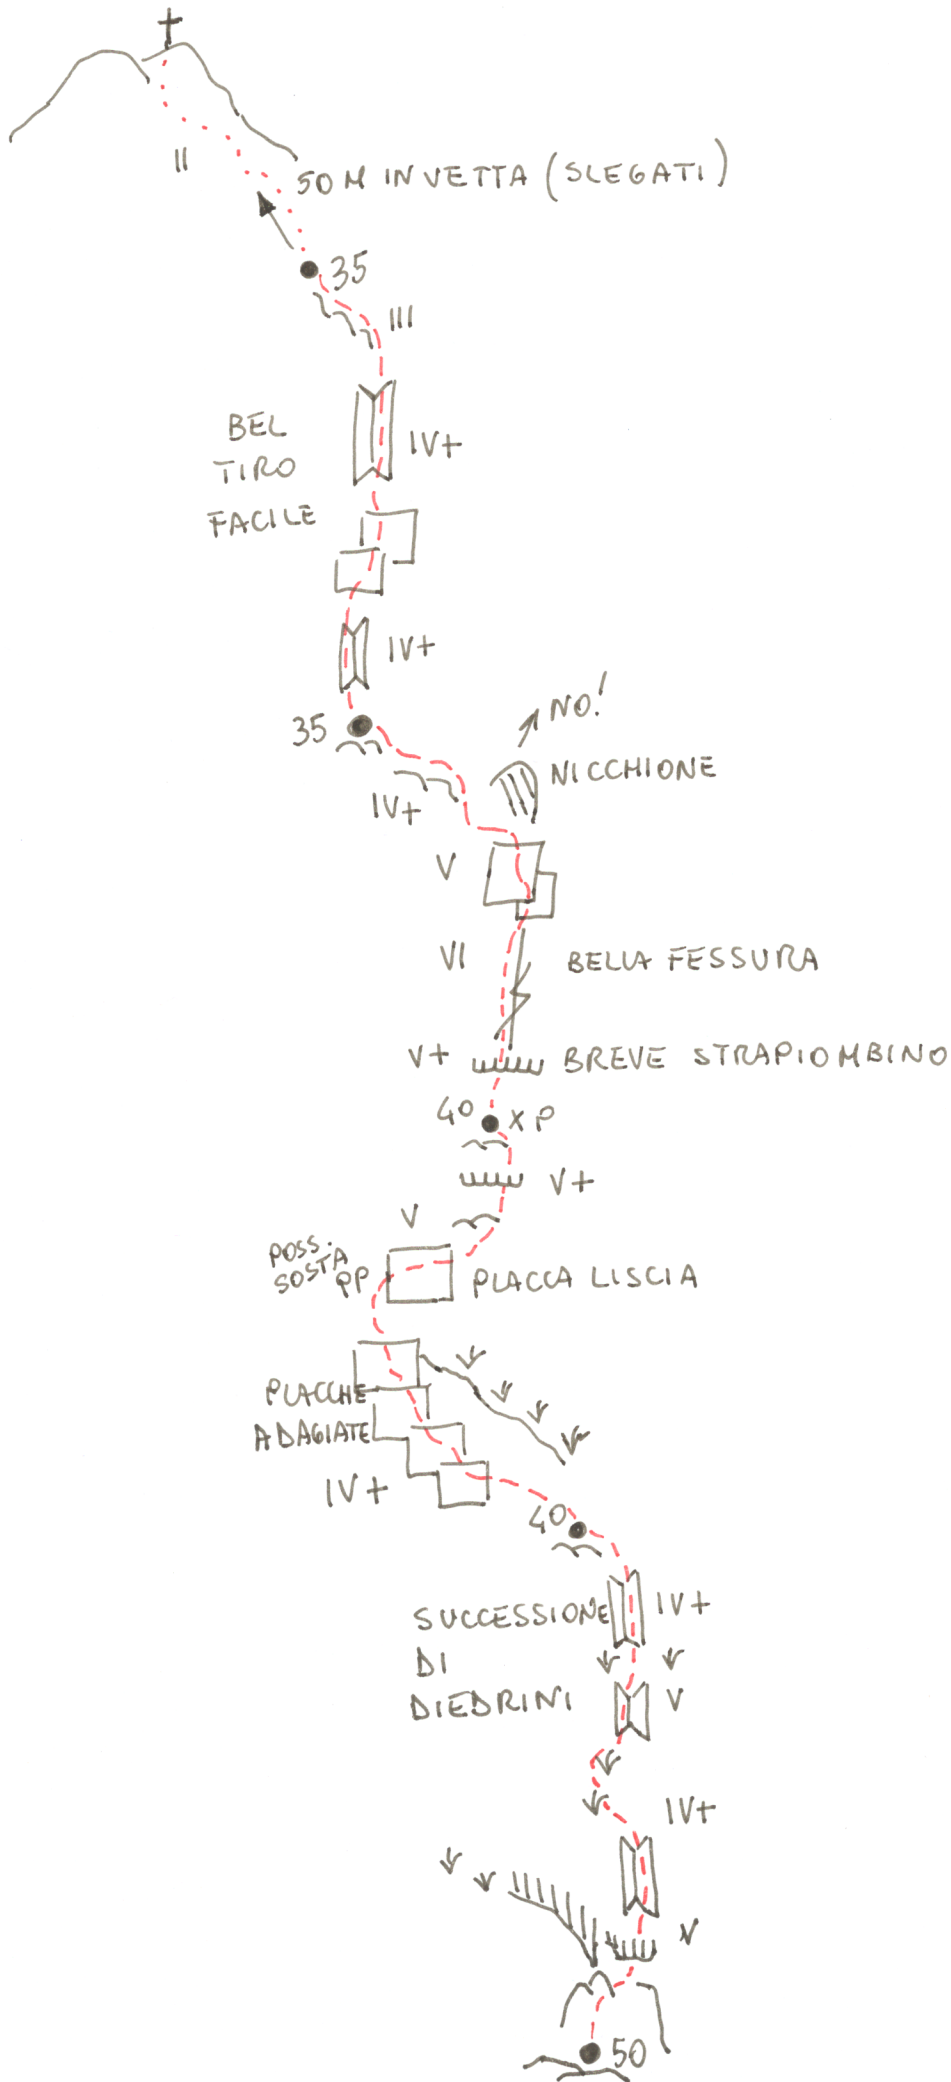 II
50 M IN VETTA (SLEGATI)
35
III
BEL
TIRO
FACILE
IV+
IV+
35
NO!
NICCHIONE
IV+
V
VI
BELLA FESSURA
V+
BREVE STRAPIOMBINO
40
XP
V+
V
POSS.
SOSTA
PP
PLACCA LISCIA
PLACCHE
ADAGIATE
IV+
40
SUCCESSIONE
DI
DIEDRINI
IV+
V
IV+
V
50